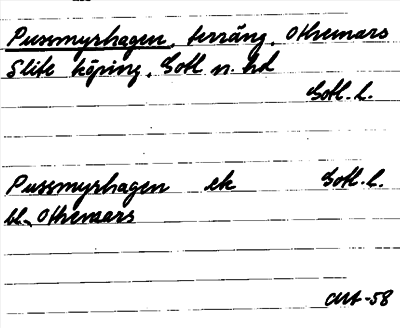 Pussmyrhagen, terräng, Othemars
Slite köping, Gotl n. hd
Gotl. l.
Pussmyrhagen ek Gotl. l.
bl. Othemars
-58